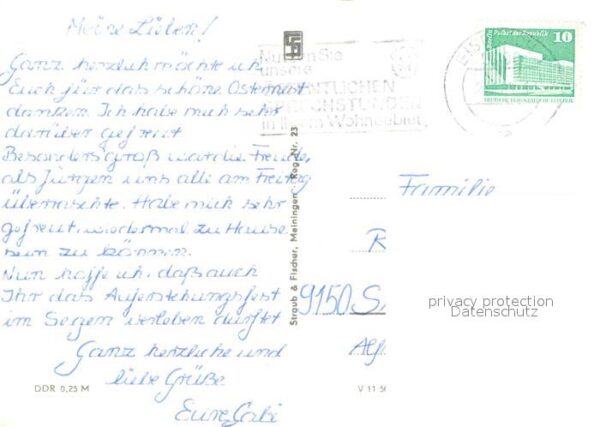 Meine Lieben!
Ganz herzlich möchte ich
Euch für das schöne Osternest
danken. Ich habe mich sehr
darüber gefreut
Besonders groß war die Freude,
als Jürgen uns alle am Freitag
überraschte. Habe mich sehr
gefreut, wiedermal zu Hause
sein zu können.
Nun hoffe ich, daß auch
Ihr das Auferstehungsfest
im Segen verleben durftet
Ganz herzliche und
liebe Grüße
Eure Gabi
DDR 0,25 M
Straub & Fischer, Meiningen Reg.-Nr. 23
V 11 50
Nutzen Sie
unsere
ÖFFENTLICHEN
SPRECHSTUNDEN
in Ihrem Wohngebiet
Berlin, Palast der Republik
10
DEUTSCHE DEMOKRATISCHE REPUBLIK
Familie
R
9150 S
privacy protection
Datenschutz